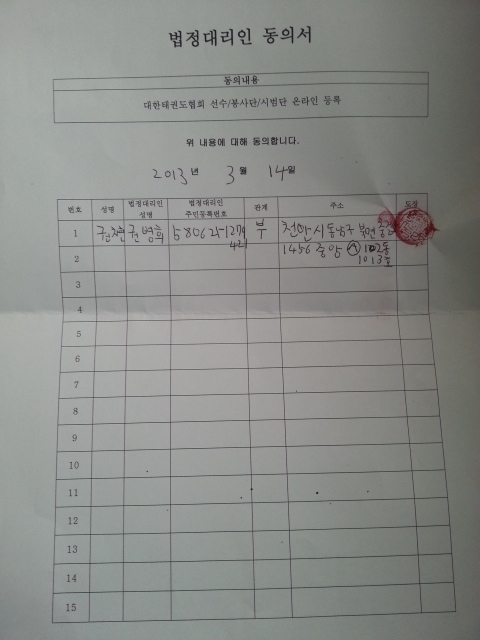 법정대리인 동의서
동의내용
대한태권도협회 선수/봉사단/시범단 온라인 등록
위 내용에 대해 동의합니다.
2013년 3월 14일
번호 성명 법정대리인 성명 법정대리인 주민등록번호 관계 주소 도장
1 권병희 부 천안시 동남구
2 1456 중앙 A 102동
1013호
3
4
5
6
7
8
9
10
11
12
13
14
15